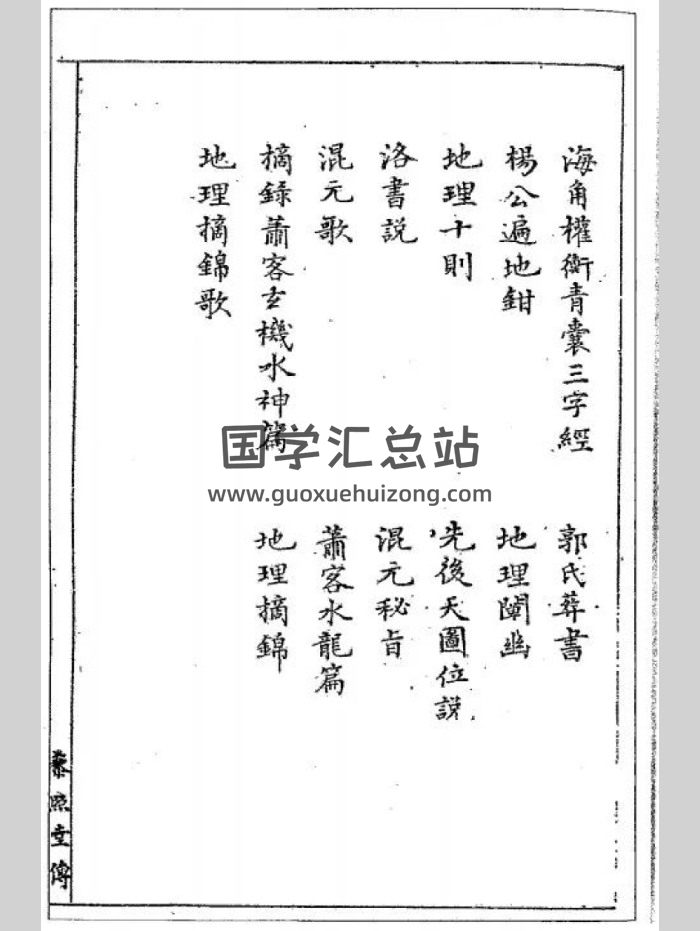 海角權衡青囊三字經
郭氏葬書
楊公遍地鉗
地理闡幽
地理十則
先後天圖位說
洛書說
混元秘旨
混元歌
蕭客水龍篇
摘錄蕭客玄機水神篇
地理摘錦
地理摘錦歌
國学汇总站
www.guoxuehuizong.com
堂傳